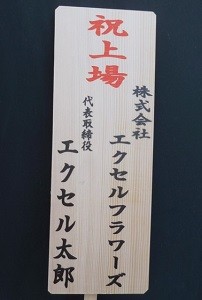 祝上場
株式会社
エクセルフラワーズ
代表取締役
エクセル太郎